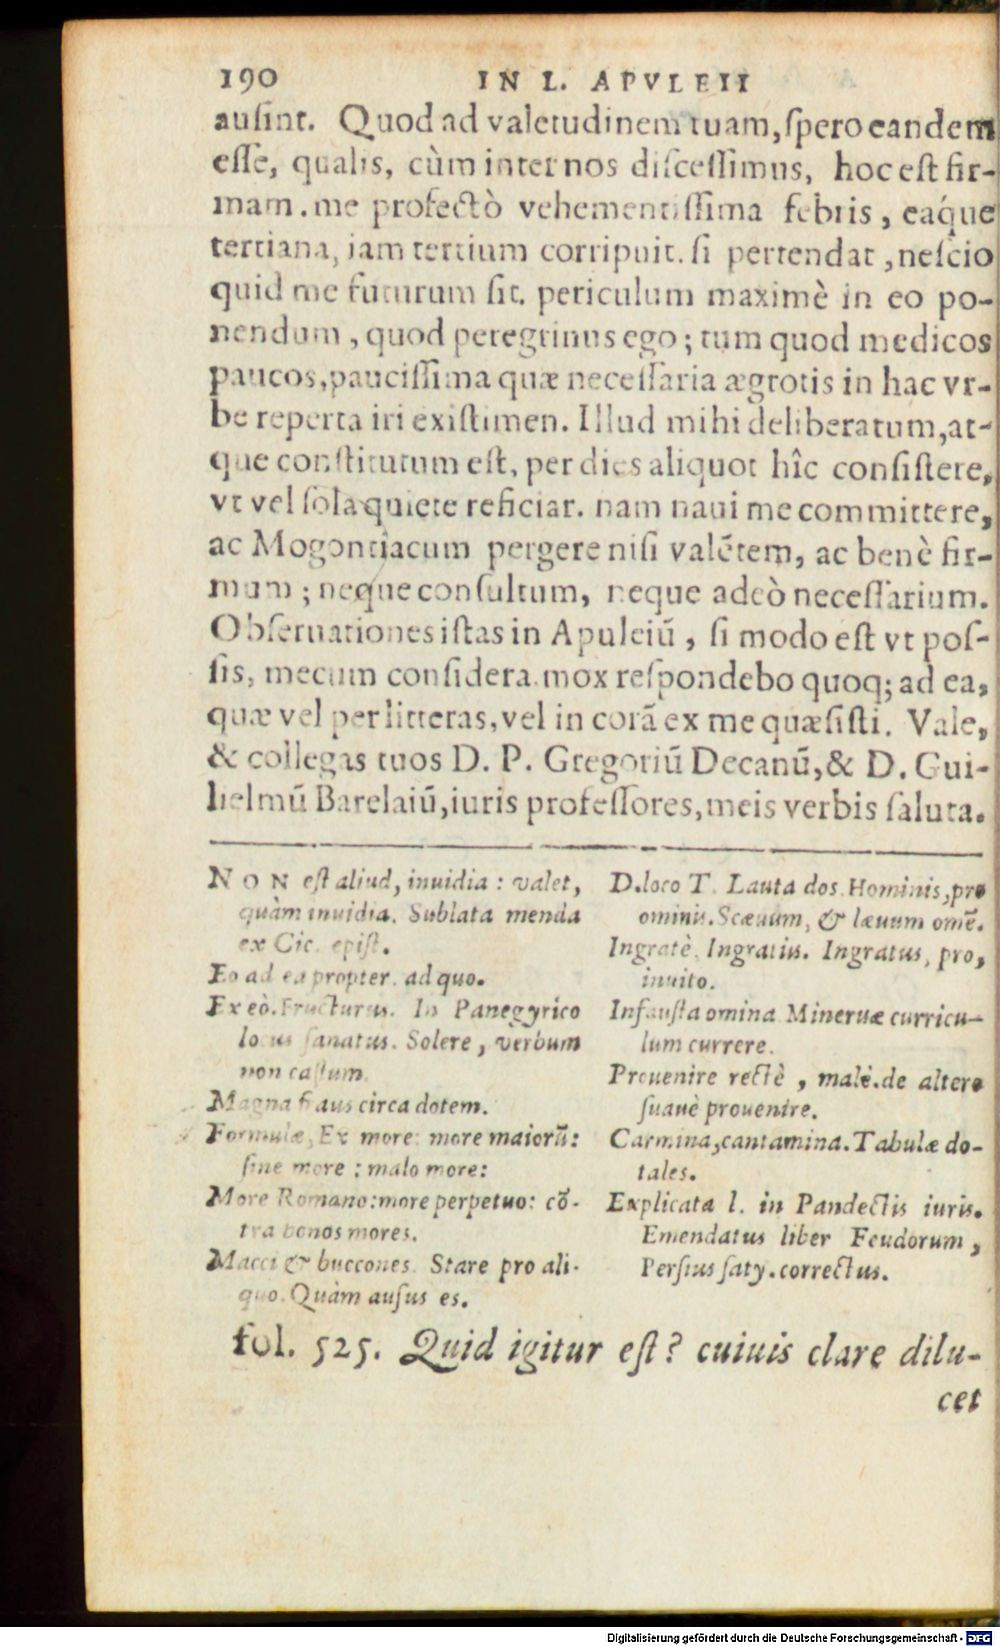 190 IN L. APVLEII
ausint. Quod ad valetudinem tuam, spero eandem
esse, qualis, cùm inter nos discessimus, hoc est fir-
mam. me profectò vehementissima febris, eáque
tertiana, iam tertium corripuit. si pertendat, nescio
quid me futurum sit. periculum maximè in eo po-
nendum, quod peregrinus ego; tum quod medicos
paucos, paucissima quæ necessaria ægrotis in hac vr-
be reperta iri existimen. Illud mihi deliberatum, at-
que constitutum est, per dies aliquot hîc consistere,
vt vel sola quiete reficiar. nam naui me committere,
ac Mogontiacum pergere nisi valẽtem, ac benè fir-
mum; neque consultum, neque adeò necessarium.
Obseruationes istas in Apuleiũ, si modo est vt pos-
sis, mecum considera. mox respondebo quoq; ad ea,
quæ vel per litteras, vel in corã ex me quæsisti. Vale,
& collegas tuos D. P. Gregoriũ Decanũ, & D. Gui-
lielmũ Barelaiũ, iuris professores, meis verbis saluta.
NON est aliud, inuidia: valet,
quàm inuidia. Sublata menda
ex Cic. epist.
Eo ad ea propter. ad quo.
Ex eò. Fructurus. In Panegyrico
locus sanatus. Solere, verbum
non castum.
Magna fraus circa dotem.
Formulæ, Ex more: more maiorũ:
sine more: malo more:
More Romano: more perpetuo: cõ-
tra bonos mores.
Macci & buccones. Stare pro ali-
quo. Quàm ausus es.
D. loco T. Lauta dos. Hominis, pro
ominis. Scæuum, & læuum omẽ.
Ingratè. Ingratiis. Ingratus, pro,
inuito.
Infausta omina Mineruæ curricu-
lum currere.
Prouenire rectè, malè. de altero
suauè prouenire.
Carmina, cantamina. Tabulæ do-
tales.
Explicata l. in Pandectis iuris.
Emendatus liber Feudorum,
Persius saty. correctus.
fol. 525. Quid igitur est? cuiuis clare dilu-
cet
Digitalisierung gefördert durch die Deutsche Forschungsgemeinschaft - DFG